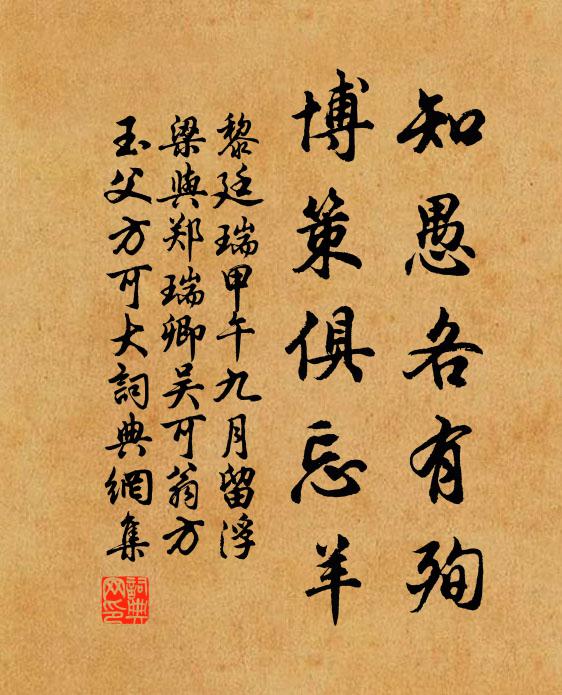 知愚各有殉
博策俱忘羊
黎廷瑞甲午九月留浮
梁與郑瑞卿吴可翁方
玉父方可大詞典網集
詞典網印